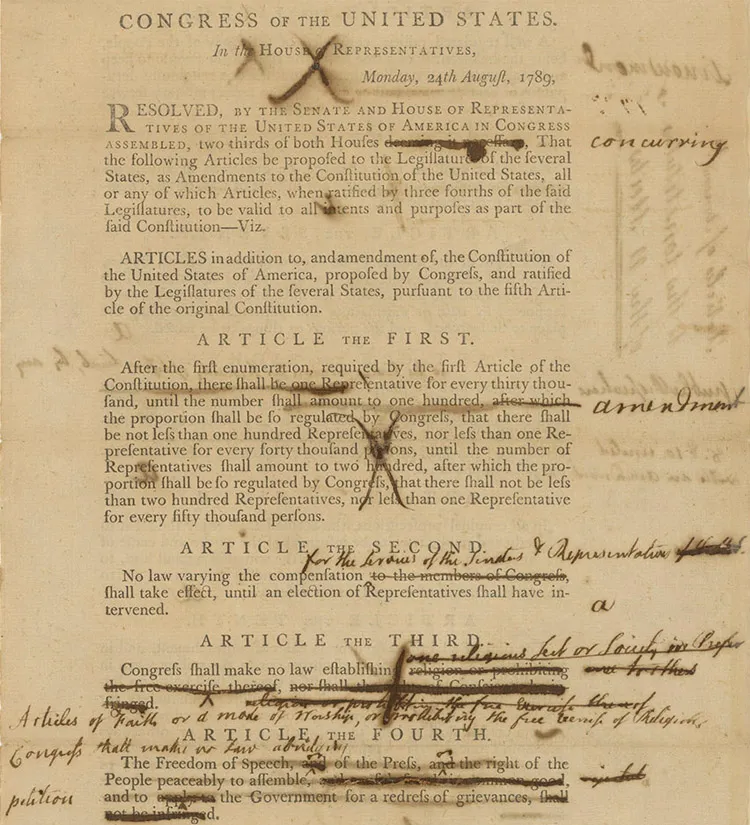 CONGRESS OF THE UNITED STATES.
In the HOUSE of REPRESENTATIVES,
Monday, 24th Auguſt, 1789,
RESOLVED, BY THE SENATE AND HOUSE OF REPRESENTA-
TIVES OF THE UNITED STATES OF AMERICA IN CONGRESS
ASSEMBLED, two thirds of both Houſes deeming it neceſſary, That concurring
the following Articles be propoſed to the Legiſlatures of the ſeveral
States, as Amendments to the Conſtitution of the United States, all
or any of which Articles, when ratified by three fourths of the ſaid
Legiſlatures, to be valid to all intents and purpoſes as part of the
ſaid Conſtitution—Viz.
ARTICLES in addition to, and amendment of, the Conſtitution of
the United States of America, propoſed by Congreſs, and ratified
by the Legiſlatures of the ſeveral States, purſuant to the fifth Arti-
cle of the original Conſtitution.
ARTICLE THE FIRST.
After the firſt enumeration, required by the firſt Article of the
Conſtitution, there ſhall be one Repreſentative for every thirty thou-
ſand, until the number ſhall amount to one hundred, after which amendment
the proportion ſhall be ſo regulated by Congreſs, that there ſhall
be not leſs than one hundred Repreſentatives, nor leſs than one Re-
preſentative for every forty thouſand perſons, until the number of
Repreſentatives ſhall amount to two hundred, after which the pro-
portion ſhall be ſo regulated by Congreſs, that there ſhall not be leſs
than two hundred Repreſentatives, nor leſs than one Repreſentative
for every fifty thouſand perſons.
ARTICLE THE SECOND.
for the Services of the Senators & Representatives
No law varying the compenſation to the members of Congreſs,
ſhall take effect, until an election of Repreſentatives ſhall have in-
tervened. a
ARTICLE THE THIRD.
one religious Sect or Society in Prefer
Congreſs ſhall make no law eſtabliſhing religion or prohibiting
the free exerciſe thereof, nor ſhall the of Conſcience
fringed. religion or prohibiting the free Exercise thereof
Articles of Faith or a mode of Worship, or prohibiting the free exercise of Religion,
ARTICLE THE FOURTH.
Congress shall make no Law abridging
The Freedom of Speech, and of the Preſs, and the right of the
People peaceably to aſſemble, common good,
petition and to apply to the Government for a redreſs of grievances, ſhall
not be infringed.